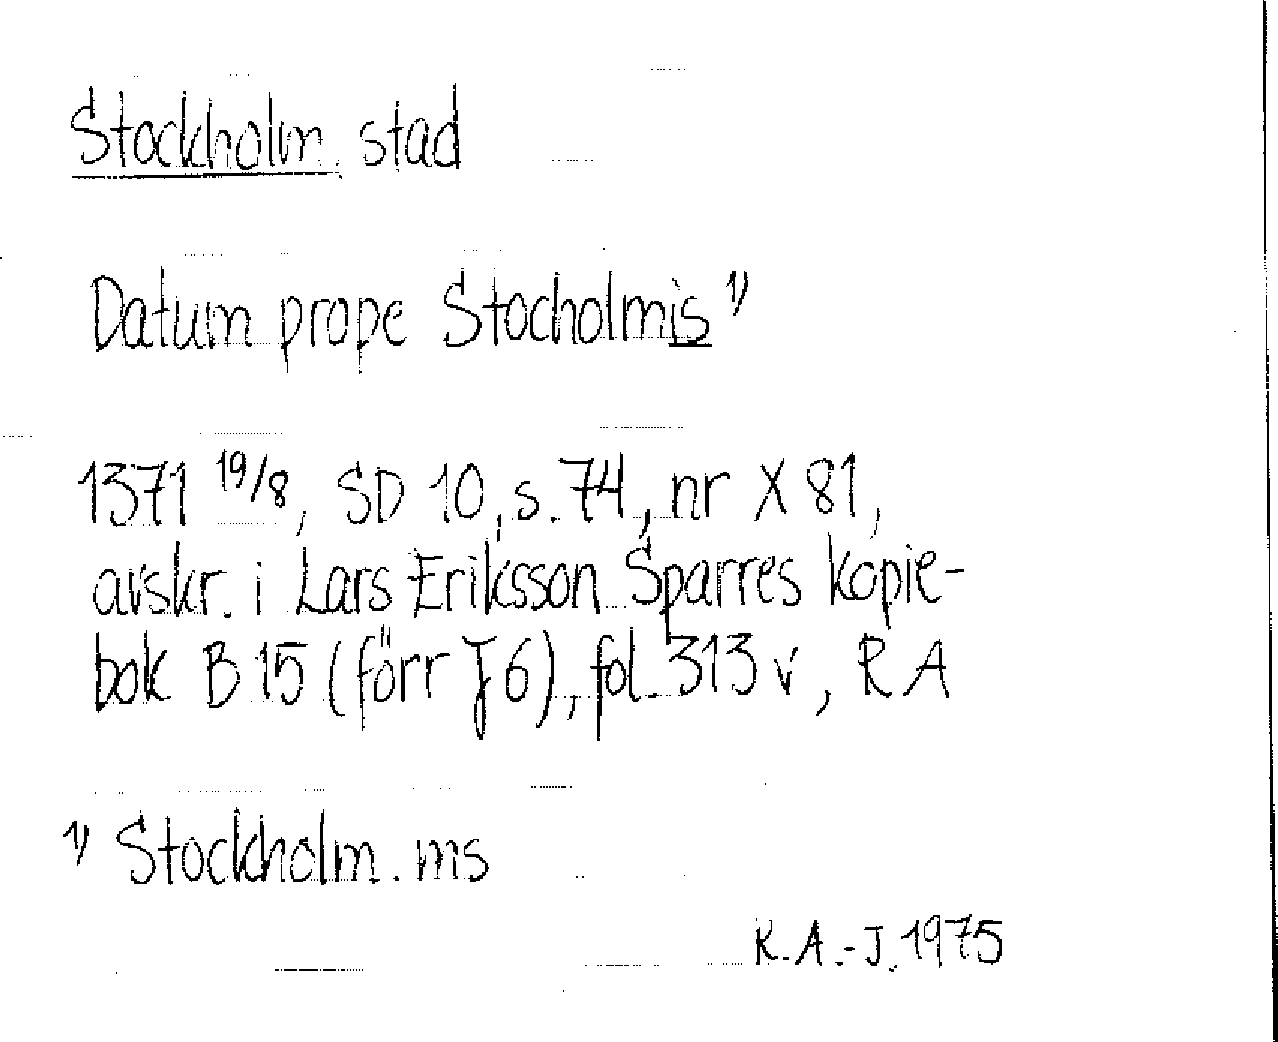 Stockholm stad
Datum prope Stocholmis 1)
1371 19/8, SD 10, s. 74, nr X 81,
avskr. i Lars Eriksson Sparres kopie-
bok B 15 (förr J 6), fol. 313 v, RA
1) Stockholm. ms
K.A.-J. 1975